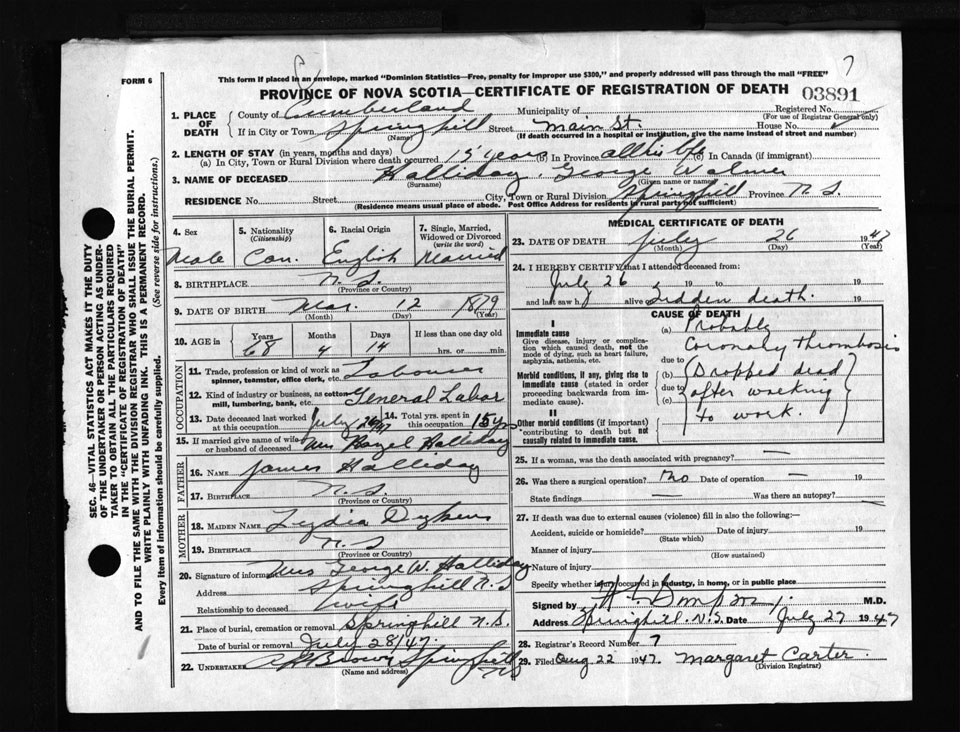 7
FORM 6
This form if placed in an envelope, marked "Dominion Statistics—Free, penalty for improper use $300," and properly addressed will pass through the mail "FREE"
PROVINCE OF NOVA SCOTIA—CERTIFICATE OF REGISTRATION OF DEATH 03891
1. PLACE OF DEATH County of Cumberland Municipality of Registered No.
(For use of Registrar General only)
If in City or Town Springhill Street Main St. House No.
(Name) (If death occurred in a hospital or institution, give the name instead of street and number)
2. LENGTH OF STAY (in years, months and days)
(a) In City, Town or Rural Division where death occurred 15 years (b) In Province all his life (c) In Canada (if immigrant)
3. NAME OF DECEASED Halliday, George Walmer
(Surname) (Given name or names)
RESIDENCE No. Street City, Town or Rural Division Springhill Province N.S.
(Residence means usual place of abode. Post Office Address for residents in rural parts not sufficient)
4. Sex Male
5. Nationality (Citizenship) Can.
6. Racial Origin English
7. Single, Married, Widowed or Divorced (write the word) Married
8. BIRTHPLACE N.S.
(Province or Country)
9. DATE OF BIRTH Mar. 12 1879
(Month) (Day) (Year)
10. AGE in Years 68 Months 4 Days 14 If less than one day old hrs. or min
OCCUPATION
11. Trade, profession or kind of work as spinner, teamster, office clerk, etc. Labourer
12. Kind of industry or business, as cotton mill, lumbering, bank, etc. General Labor
13. Date deceased last worked at this occupation July 26/47 14. Total yrs. spent in this occupation 15 yrs
15. If married give name of wife or husband of deceased Mrs Hazel Halliday
FATHER
16. NAME James Halliday
17. BIRTHPLACE N.S.
(Province or Country)
MOTHER
18. MAIDEN NAME Lydia
19. BIRTHPLACE N.S
(Province or Country)
20. Signature of informant Mrs George W. Halliday
Address Springhill N.S
Relationship to deceased wife
21. Place of burial, cremation or removal Springhill N.S.
Date of burial or removal July 28/47.
22. UNDERTAKER Brown Springhill NS
(Name and address)
MEDICAL CERTIFICATE OF DEATH
23. DATE OF DEATH July 26 1947
(Month) (Day) (Year)
24. I HEREBY CERTIFY that I attended deceased from:
July 26 19 to 19
and last saw h alive Sudden death. 19
CAUSE OF DEATH
I
Immediate cause
Give disease, injury or complication which caused death, not the mode of dying, such as heart failure, asphyxia, asthenia, etc.
(a) Probably
Coronary thrombosis
due to
Morbid conditions, if any, giving rise to immediate cause (stated in order proceeding backwards from immediate cause).
(b) (Dropped dead
due to
(c) after working
II
Other morbid conditions (if important) contributing to death but not causally related to immediate cause.
to work.
25. If a woman, was the death associated with pregnancy? —
26. Was there a surgical operation? No Date of operation — 19
State findings — Was there an autopsy? —
27. If death was due to external causes (violence) fill in also the following:—
Accident, suicide or homicide? Date of injury 19
(State which)
Manner of injury
(How sustained)
Nature of injury
Specify whether injury occurred in industry, in home, or in public place
Signed by M.D.
Address Springhill. N.S. Date July 27 1947
28. Registrar's Record Number 7
29. Filed Aug 22 1947. Margaret Carter.
(Division Registrar)
SEC. 46—VITAL STATISTICS ACT MAKES IT THE DUTY
OF THE UNDERTAKER OR PERSON ACTING AS UNDER-
TAKER TO OBTAIN ALL THE PARTICULARS REQUIRED
IN THE "CERTIFICATE OF REGISTRATION OF DEATH"
AND TO FILE THE SAME WITH THE DIVISION REGISTRAR WHO SHALL ISSUE THE BURIAL PERMIT.
WRITE PLAINLY WITH UNFADING INK. THIS IS A PERMANENT RECORD.
Every item of information should be carefully supplied. (See reverse side for instructions.)